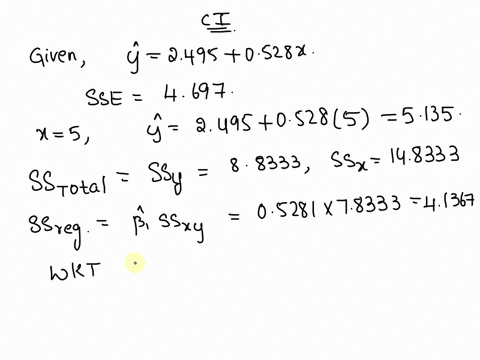 CI
Given, ŷ = 2.495 + 0.528x.
SSE = 4.697.
x = 5, ŷ = 2.495 + 0.528 (5) = 5.135.
SSTotal = SSy = 8.8333, SSx = 14.8333
SSreg. = β̂₁ SSxy = 0.5281 × 7.8333 = 4.1367
WKT